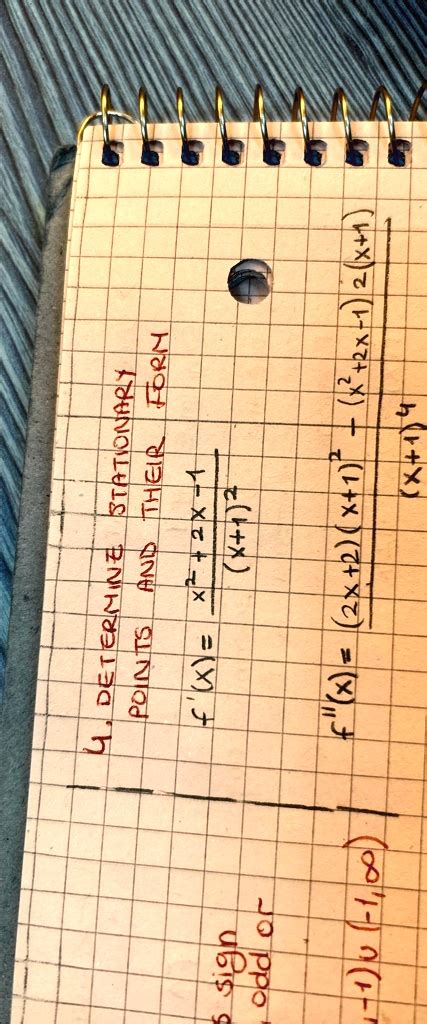 4. DETERMINE STATIONARY
POINTS AND THEIR FORM
f'(x) = \frac{x² + 2x - 1}{(x+1)²}
f''(x) = \frac{(2x+2)(x+1)² - (x²+2x-1) 2(x+1)}{(x+1)⁴}
sign
odd or
-1) ∪ (-1, ∞)